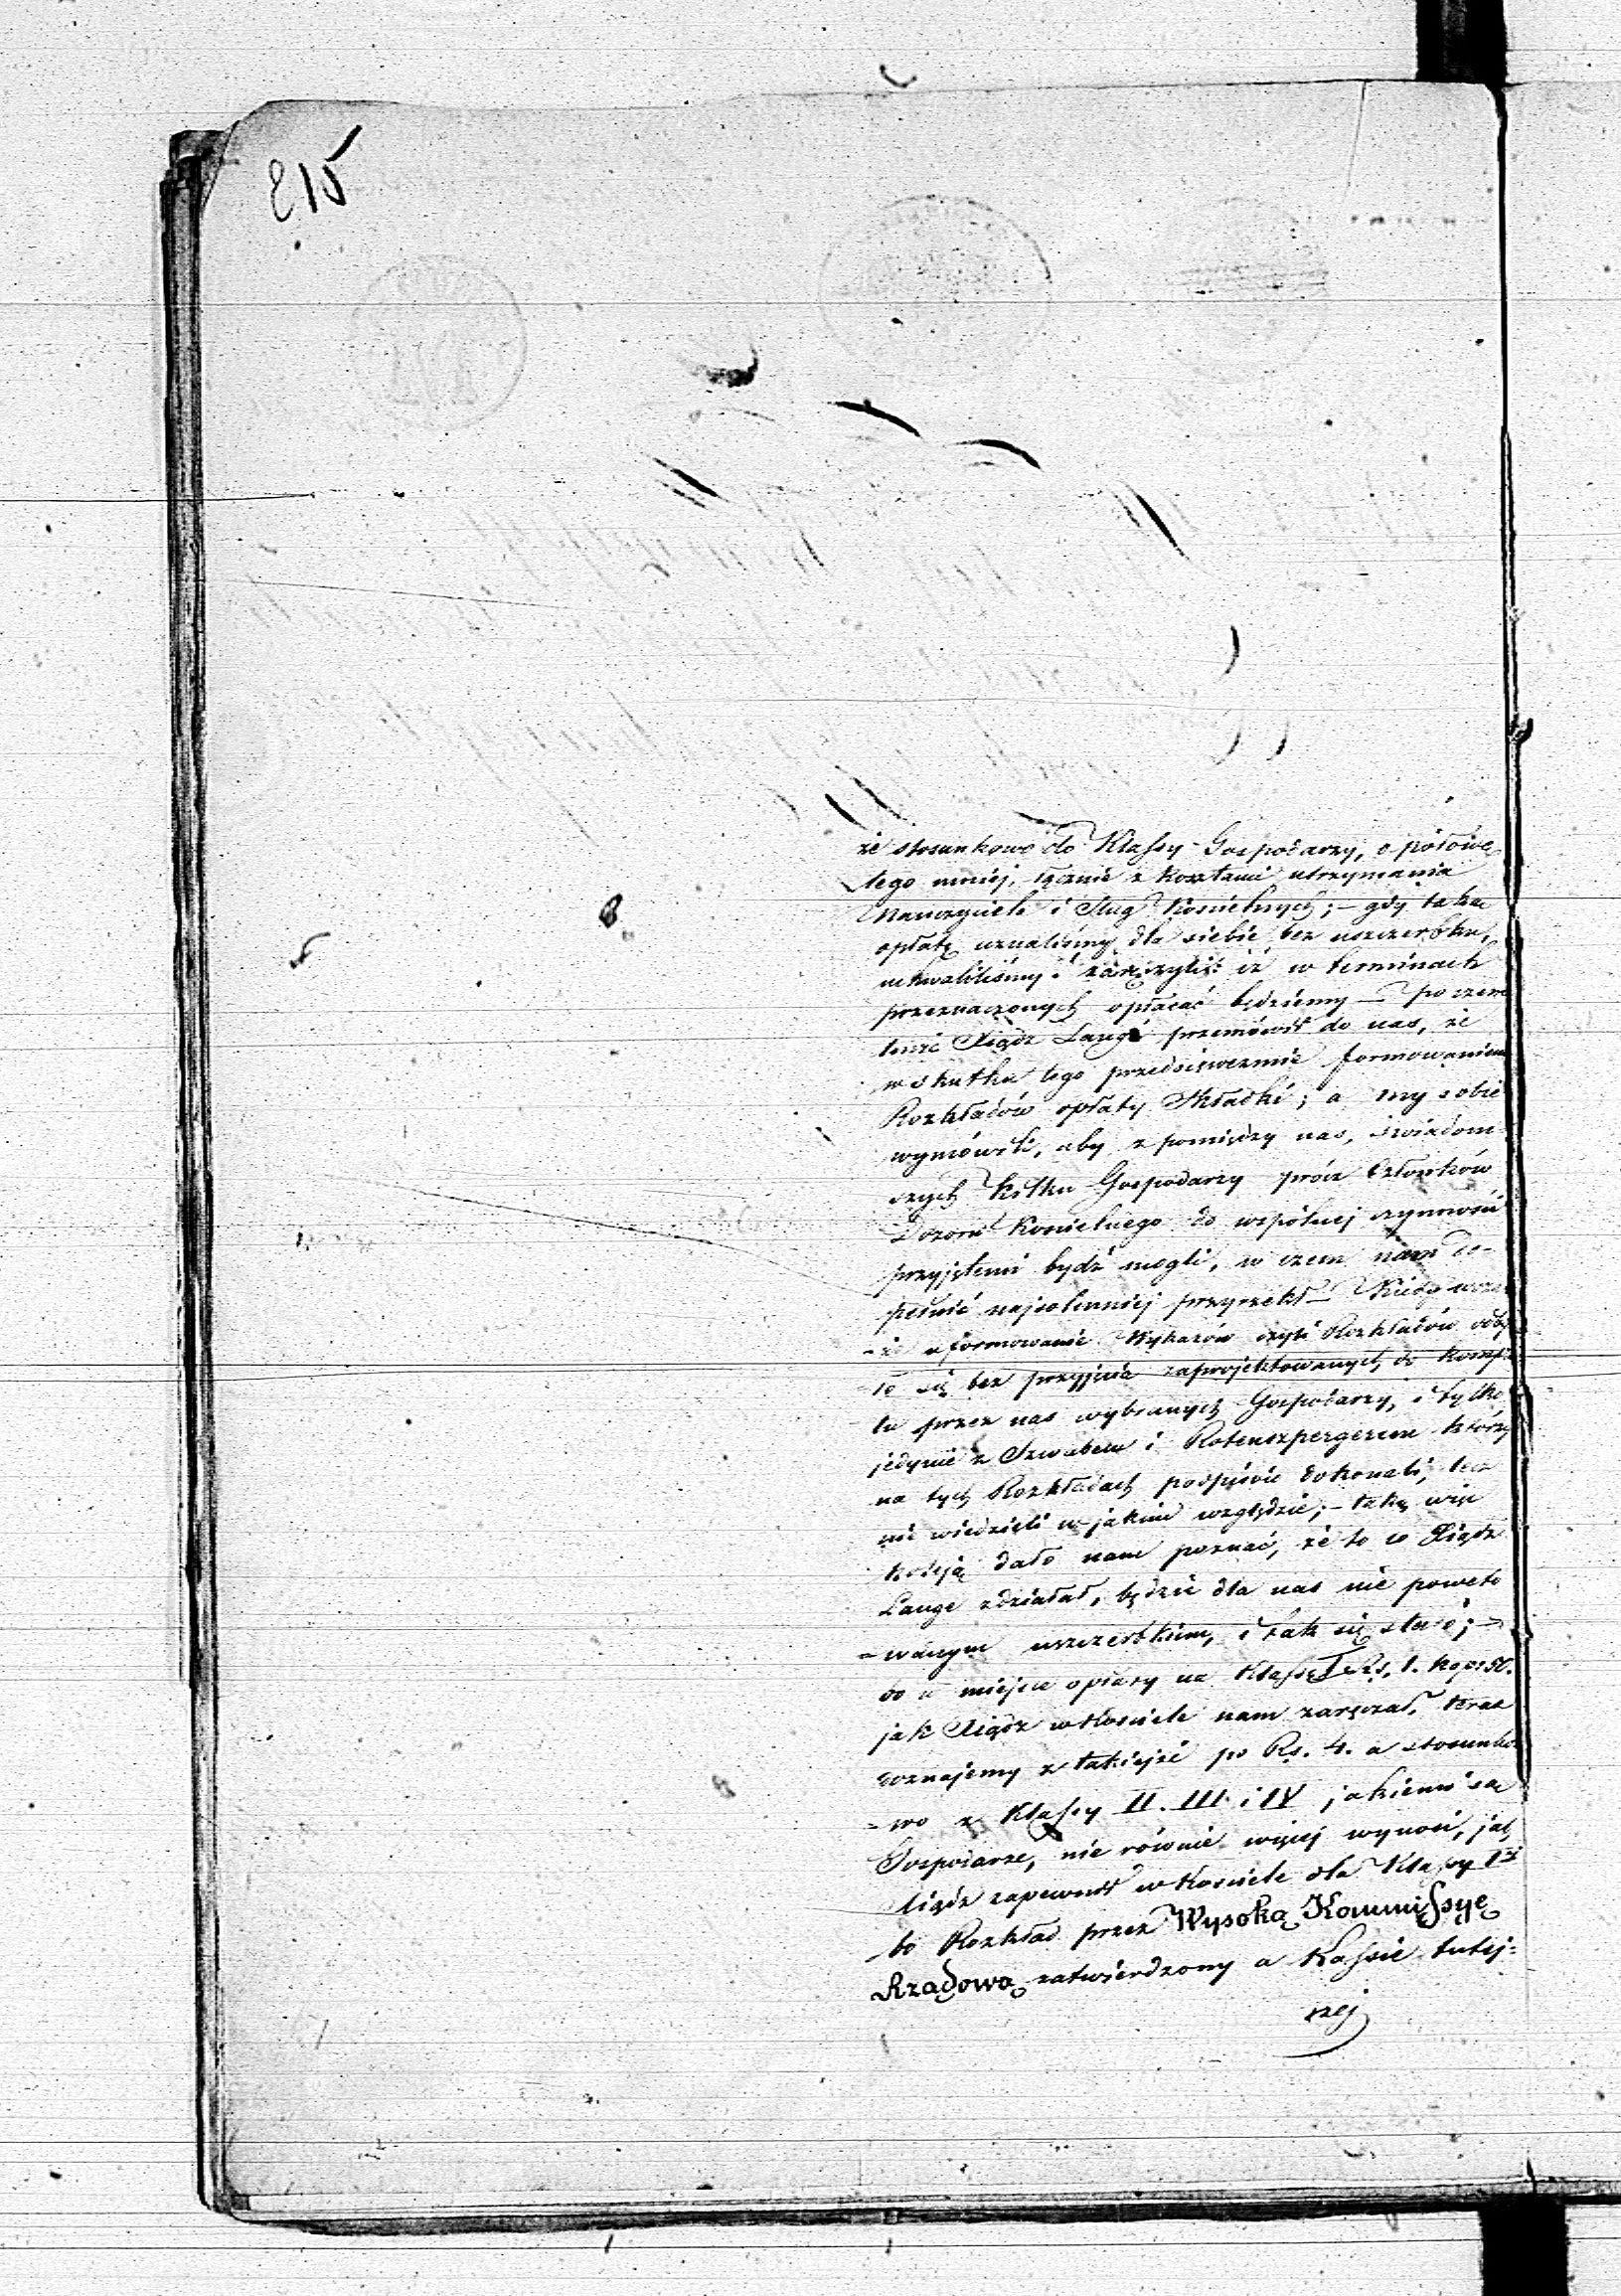 215
że stosunkowo do Klassy Gospodarzy, o połowę
tego mniej, łącznie z kosztami utrzymania
Nauczyciela i Sług Kościelnych; – gdy taką
opłatę uznaliśmy dla siebie bez uszczerbku,
uchwaliliśmy i zaręczyli: iż w terminach
przeznaczonych opłacać będziemy – po czem
tenże Xiądz Lange przemówił do nas, że
w skutku tego przedsięweźmie formowaniem
Rozkładów opłaty Składki; a my sobie
wymówili, aby z pomiędzy nas, świadom
szych kilku Gospodarzy prócz Członków
Dozoru Kościelnego do wspólnej czynności
przyjętemi bydź mogli, w czem nam do-
pełnić najsolenniej przyrzekł – Kiedy wsze
-że uformowanie Wykazów czyli Rozkładów odby
ło się bez przyjęcia zaprojektowanych do komple
tu przez nas wybranych Gospodarzy, i tylko
jedynie z Szwabem i Rotenszpergerem którzy
na tych Rozkładach podpisów dokonali, lecz
nie wiedzieli w jakim względzie; – taką więc
koleją dało nam poznać, że to co Xiądz
Lange zdziałał, będzie dla nas nie poweto
-wanym uszczerbkiem, i tak się stało; –
bo w miejsce opłaty na Klassę I Rs. 1. kop. 50.
jak Xiądz w Kościele nam zaręczał, teraz
doznajemy z takiejże po Rs. 4. a stosunko
-wo z Klassy II. III. i IV jakiemi są
Gospodarze, nie równie więcej wynosi, jak
Xiądz zapewnił w Kościele dla Klassy I
bo Rozkład przez Wysoką Kommissyę
Rządową zatwierdzony a Kassie tutej=
szej